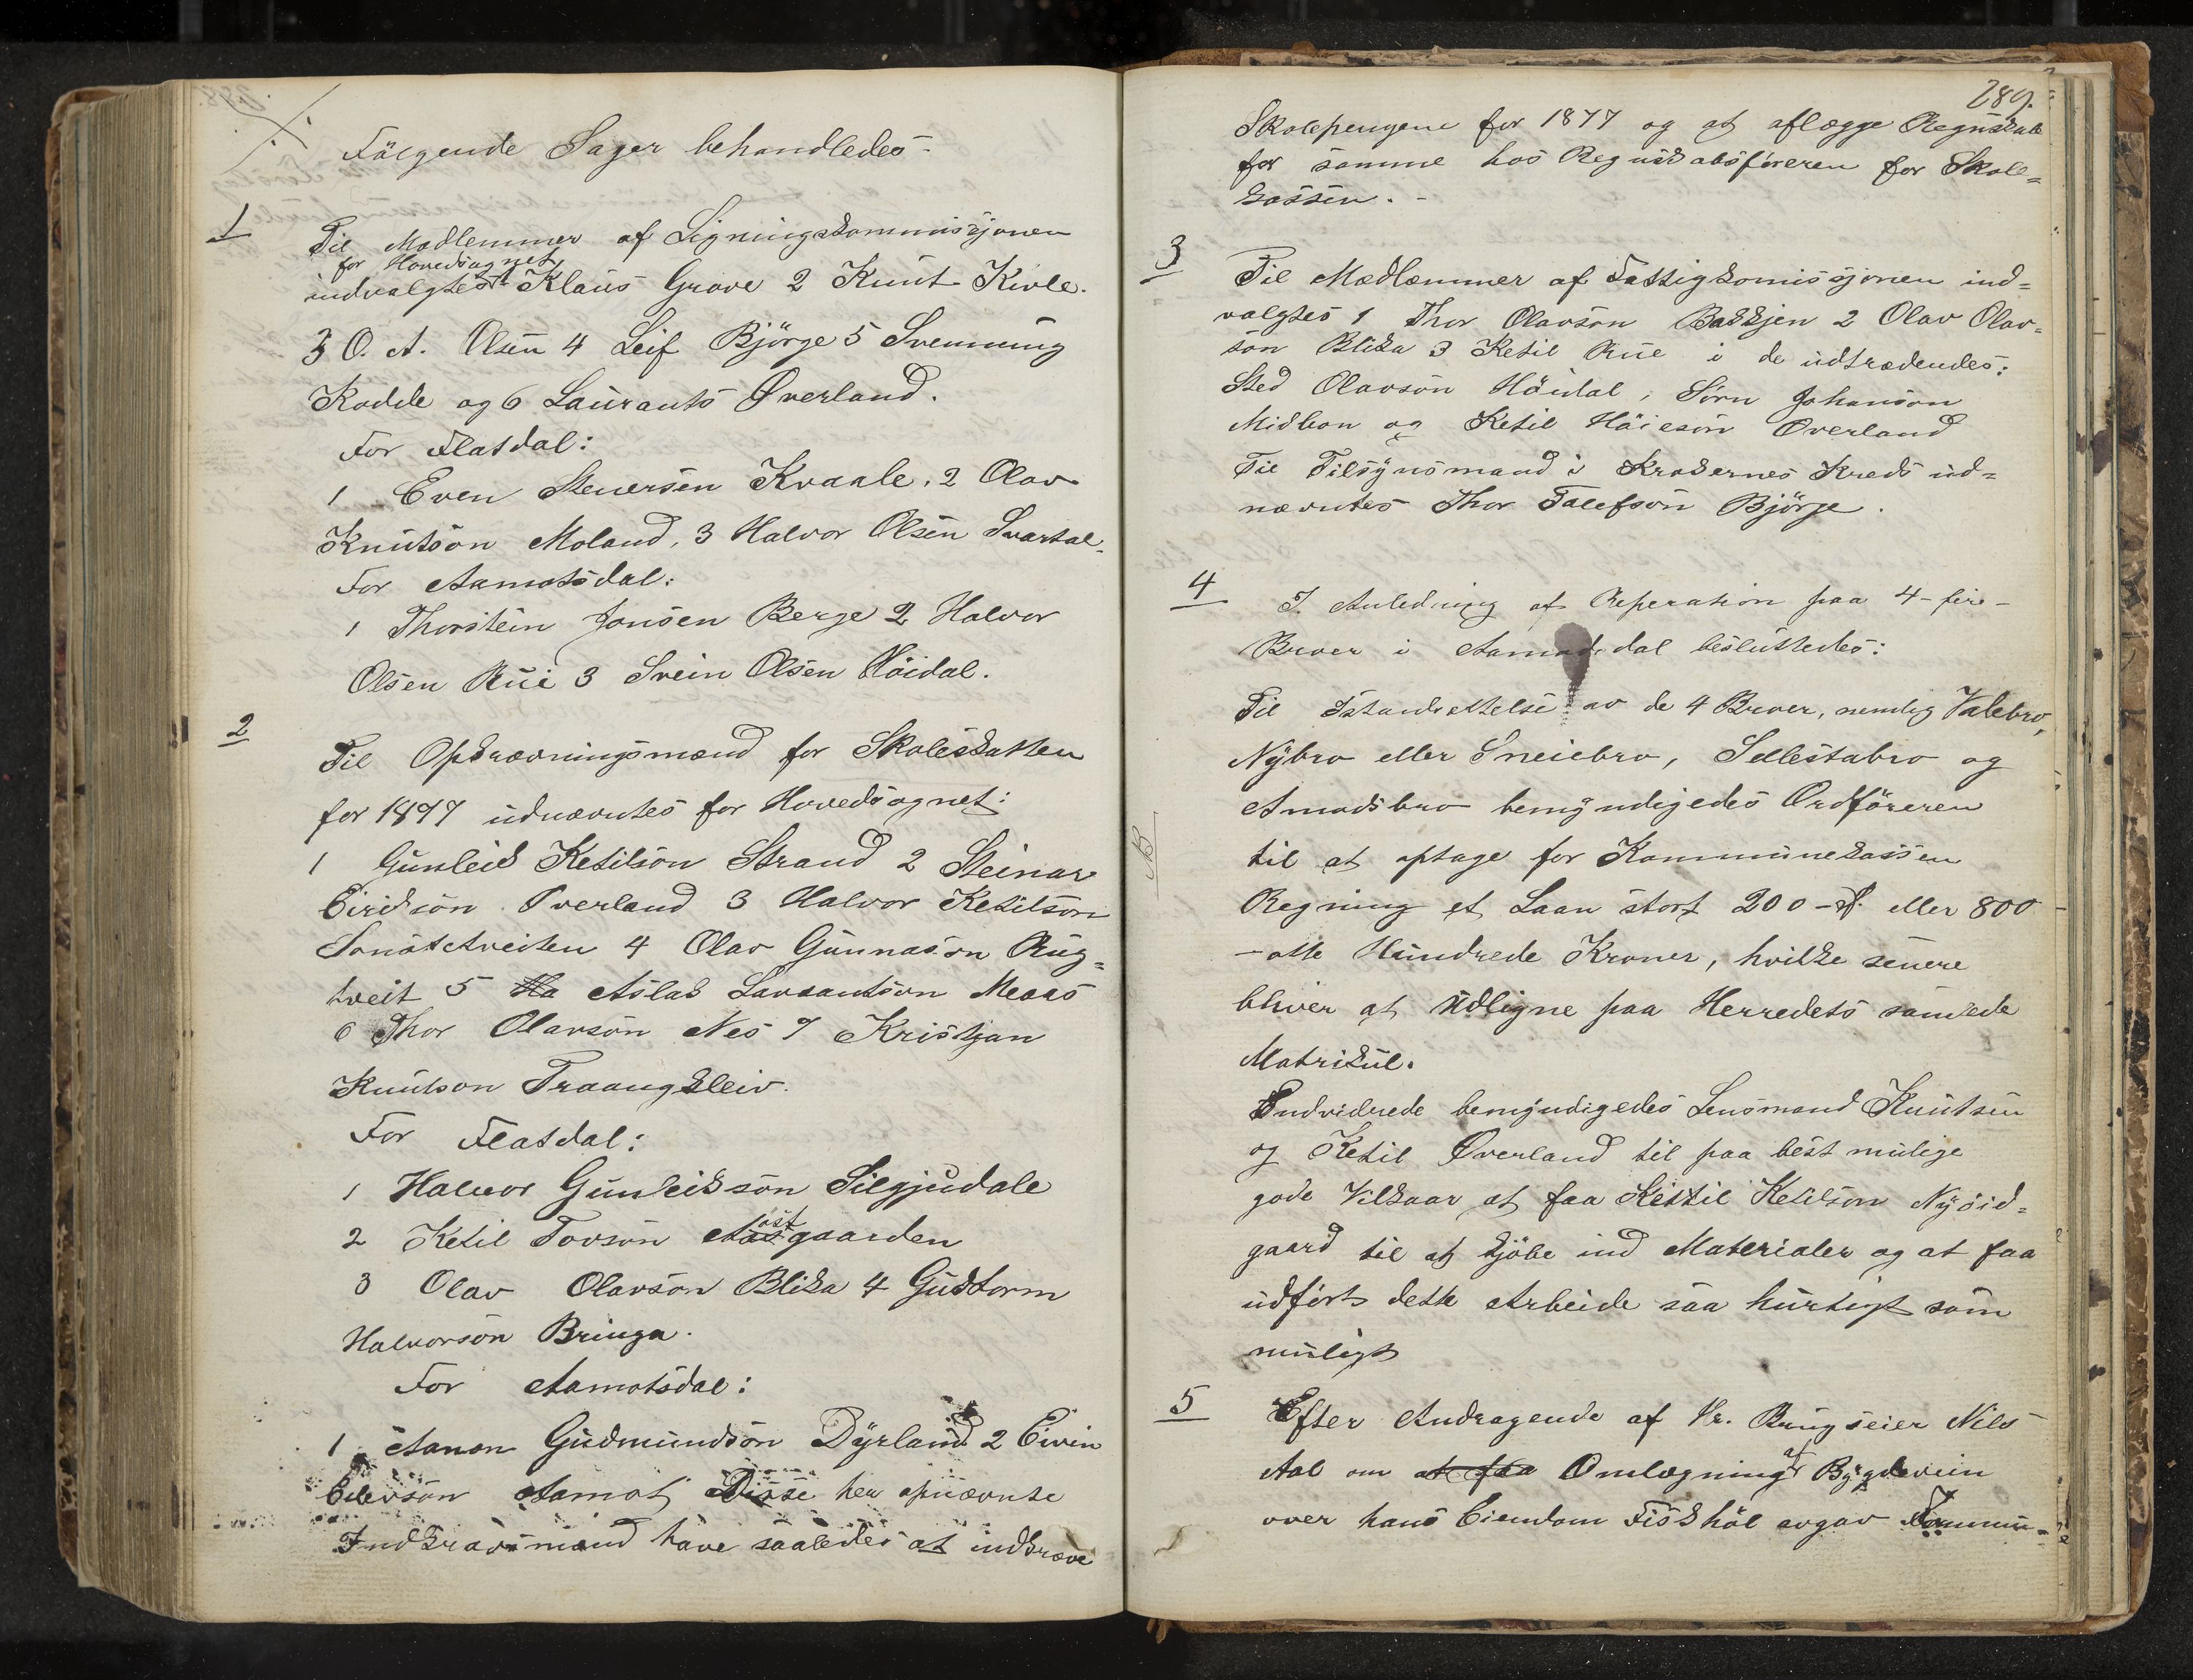 ./.
Følgende Sager behandledes:
1
Til Medlemmer af Ligningskommissjonen
for Hovedsognet
indvalgtes 1 Klaus Grave 2 Knut Kivle.
3 O. A. Olsen 4 Leif Bjørge 5 Svennung
Kodde og 6 Laurants Øverland.
For Flatdal:
1 Even Steuersen Kvaale, 2 Olav
Knutsøn Moland, 3 Halvor Olsen Svartal.
For Aamotsdal:
1 Thorstein Jonsen Berge 2 Halvor
Olsen Rui 3 Svein Olsen Høidal.
2
Til Opkrævningsmænd for Skoleskatten
for 1877 udnævntes for Hovedsognet:
1 Gunleik Ketilsøn Strand 2 Steinar
Eiriksøn Øverland 3 Halvor Ketilsøn
4 Olav Gunnarsøn Rug=
tveit 5 Ha Aslak Lavrantsøn Meaas
6 Thor Olavsøn Nes 7 Kristjan
Knutson Traangkleiv.
For Flatdal:
1 Halvor Gunleiksøn Silgjudale
2 Ketil Tovsøn Aasgaarden
ast
3 Olav Olavsøn Blika 4 Gudtorm
Halvorsøn Bringa.
For Aamotsdal:
1 Aanon Gudmundsøn Dyrland 2 Eivin
Aamot Disse her opnævnte
Indkrævsmænd have saaledes at indkræve
289.
Skolepengene for 1877 og at aflægge Regnskab
for samme hos Regnskabsføreren for Skole=
kassen. -
3
Til Medlæmmer af Fattigkomissjonen ind=
valgtes 1 Thor Olavsøn Bakkjen 2 Olav Olav=
søn Blika 3 Ketil Rue i de udtrædendes:
Sted Olavsøn Høidal, Sørn Johansøn
Midbøn og Ketil Høiesøn Øverland
Til Tilsynsmand i Krokernes Kreds ud=
nævntes Thor Talefsøn Bjørge.
4
I Anledning af Reperation paa 4-fire-
Broer i Aamodsdal besluttedes:
Til Istandsettelse av de 4 Broer, nemlig Valebro,
Nybro eller Sneiebro, Sellestabro og
Amodsbro bemyndigedes Ordføreren
NB
til at optage for Kommunekassen
Regning et Laan stort 200 - Sp. eller 800
- otte Hundrede Kroner, hvilke senere
bliver at udligne paa Herredets samlede
Matrikul.
Endvidrede bemyndigedes Lensmand Knutsen
og Ketil Øverland til paa best mulige
gode Vilkaar at faa Kittil Ketilsøn Nyøid=
gaard til at kjøbe ind Materialer og at faa
udført dette Arbeide saa hurtigt som
muligt
5
Efter Andragende af Hr. Brugseier Nils
Aal om at faa Omlægning af Bygdevein
over hans Eiendom Fiskhøl avgav Kommu=